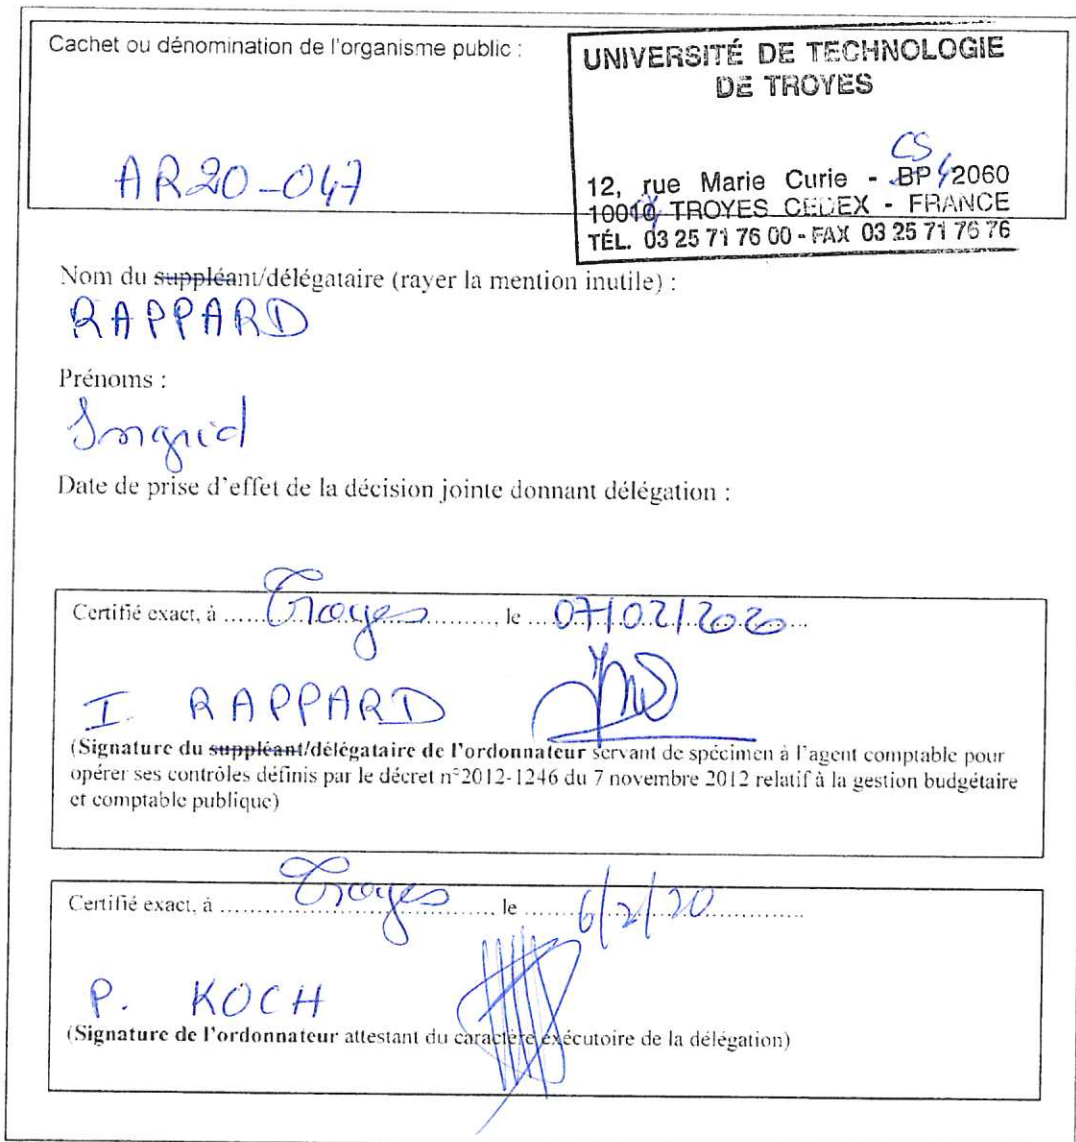 Cachet ou dénomination de l'organisme public :
UNIVERSITÉ DE TECHNOLOGIE
DE TROYES
AR20-047
CS
12, rue Marie Curie - BP 42060
10010 TROYES CEDEX - FRANCE
TÉL. 03 25 71 76 00 - FAX 03 25 71 76 76
Nom du suppléant/délégataire (rayer la mention inutile) :
RAPPARD
Prénoms :
Ingrid
Date de prise d'effet de la décision jointe donnant délégation :
Certifié exact, à ...... Troyes ......, le ... 07/02/2020 ...
I. RAPPARD
(Signature du suppléant/délégataire de l'ordonnateur servant de spécimen à l'agent comptable pour
opérer ses contrôles définis par le décret n°2012-1246 du 7 novembre 2012 relatif à la gestion budgétaire
et comptable publique)
Certifié exact, à ...... Troyes ......, le ...... 6/2/20 ......
P. KOCH
(Signature de l'ordonnateur attestant du caractère exécutoire de la délégation)